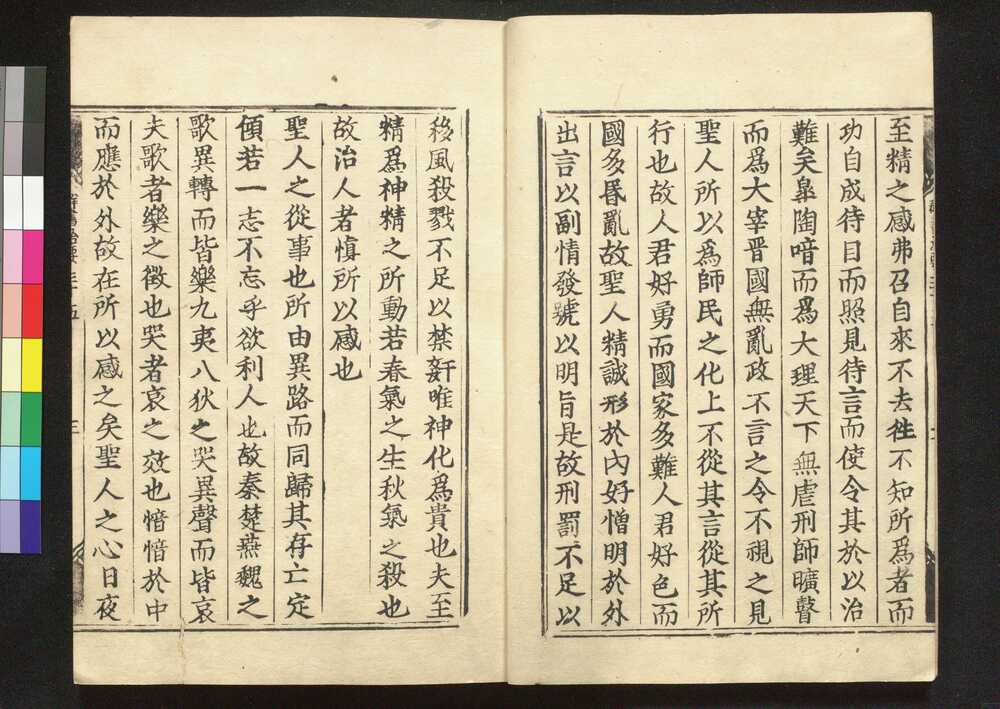 至精之感弗召自來不去徃不知所爲者而
功自成待目而照見待言而使令其於以治
難矣臯陶喑而爲大理天下無虐刑師曠瞽
而爲大宰晋國無亂政不言之令不視之見
聖人所以爲師民之化上不從其言從其所
行也故人君好勇而國家多難人君好色而
國多昏亂故聖人精誠形於內好憎明於外
出言以副情發號以明旨是故刑罰不足以
移風殺戮不足以禁姧唯神化爲貴也夫至
精爲神精之所動若春氣之生秋氣之殺也
故治人者慎所以感也
聖人之從事也所由異路而同歸其存亡定
傾若一志不忘乎欲利人也故秦楚燕魏之
歌異轉而皆樂九夷八狄之哭異聲而皆哀
夫歌者樂之徵也哭者哀之效也愔愔於中
而應於外故在所以感之矣聖人之心日夜
群書治要 三五
三